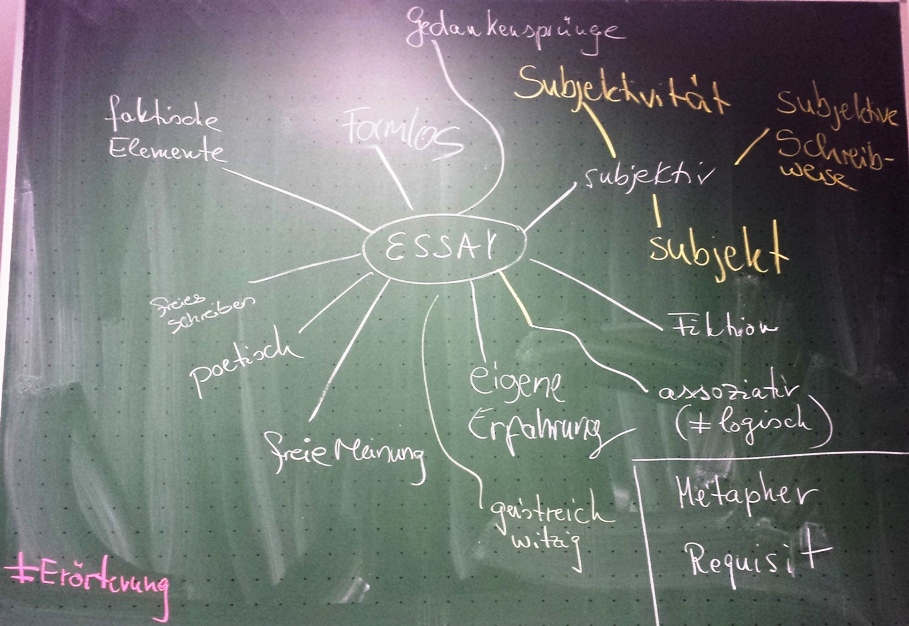 Gedankensprünge
Subjektivität
subjektive
Schreib-
weise
faktische
Elemente
Formlos
subjektiv
ESSAY
subjekt
freies
schreiben
Fiktion
poetisch
eigene
Erfahrung
assoziativ
(≠ logisch)
freie Meinung
geistreich
witzig
Metapher
Requisit
≠Erörterung